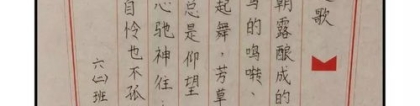 歌
朝露酿成的
鸟的鸣啭、
起舞,芳草
总是仰望
心驰神往、
自怜也不孤
六(二)班